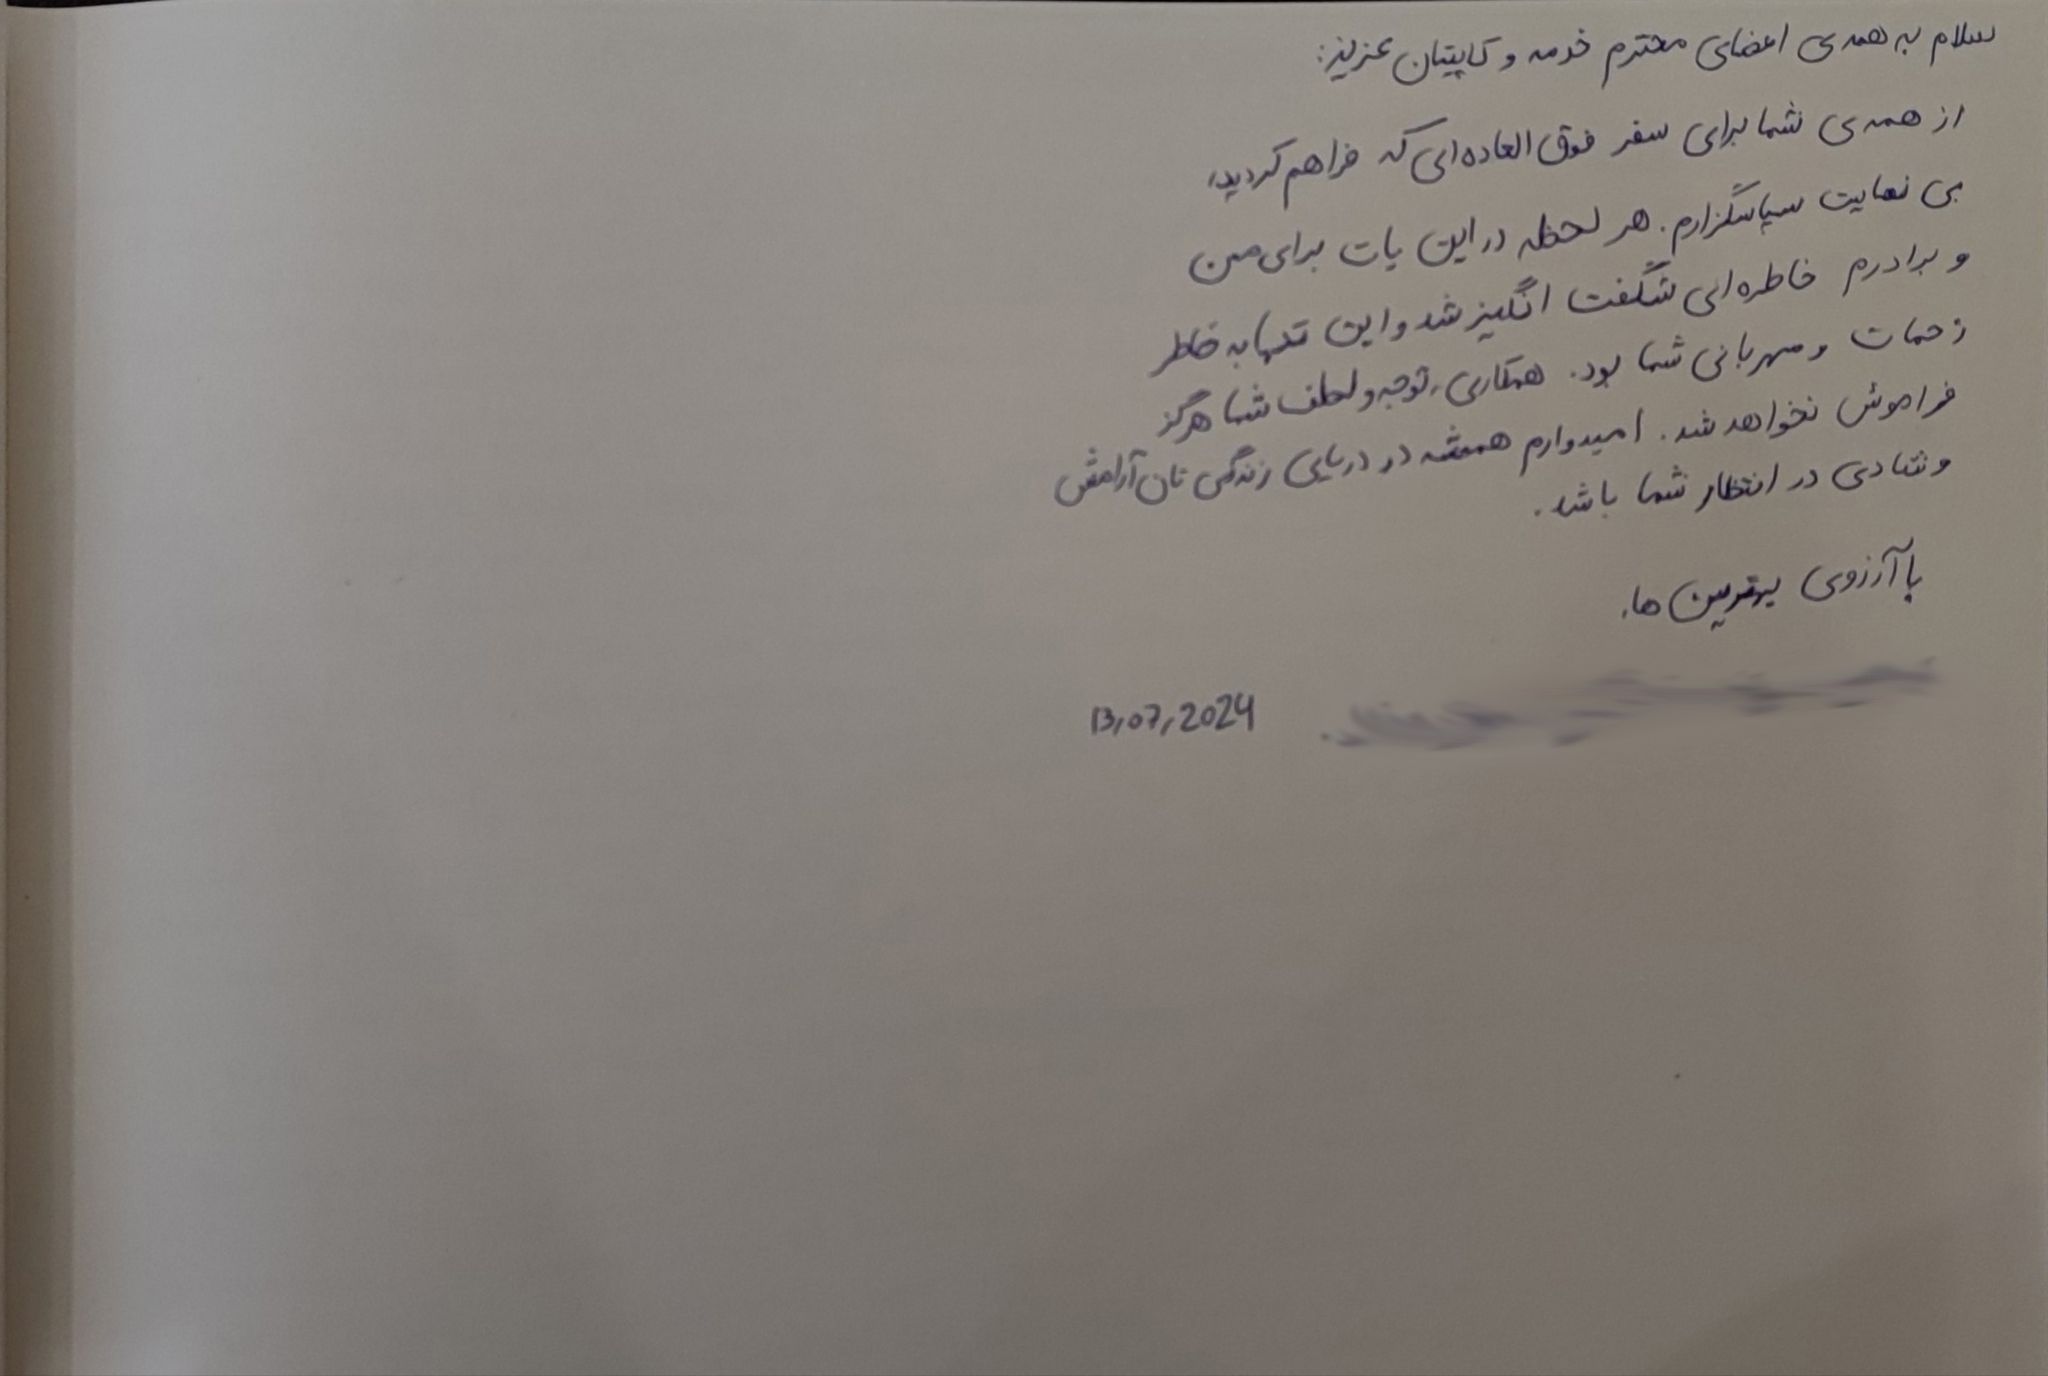 سلام به همه ی اعضای محترم خدمه و کاپیتان عزیز:
از همه ی شما برای سفر فوق العاده ای که فراهم کردید،
بی نهایت سپاسگزارم. هر لحظه در این یات برای من
و برادرم خاطره ای شگفت انگیز شد و این تنها به خاطر
زحمات و مهربانی شما بود. همکاری، توجه و لطف شما هرگز
فراموش نخواهد شد. امیدوارم همیشه در دریایی زندگی تان آرامش
و شادی در انتظار شما باشد.
با آرزوی بهترین ها.
13,07,2024